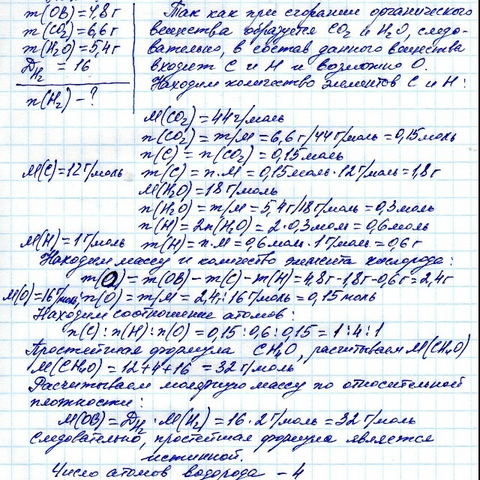 m(ОВ) = 4,8 г
m(CO₂) = 6,6 г
m(H₂O) = 5,4 г
D_H₂ = 16
n(H₂) - ?
Так как при сгорании органического
вещества образуется CO₂ и H₂O, следо-
вательно, в состав данного вещества
входит С и Н и возможно О.
Находим количество элементов С и Н:
M(CO₂) = 44 г/моль
n(CO₂) = m/M = 6,6 г/44 г/моль = 0,15 моль
n(C) = n(CO₂) = 0,15 моль
M(C) = 12 г/моль m(C) = n·M = 0,15 моль · 12 г/моль = 1,8 г
M(H₂O) = 18 г/моль
n(H₂O) = m/M = 5,4 г/18 г/моль = 0,3 моль
n(H) = 2n(H₂O) = 2·0,3 моль = 0,6 моль
M(H) = 1 г/моль m(H) = n·M = 0,6 моль · 1 г/моль = 0,6 г
Находим массу и количество элемента кислорода:
m(O) = m(ОВ) - m(C) - m(H) = 4,8 г - 1,8 г - 0,6 г = 2,4 г
M(O) = 16 г/моль n(O) = m/M = 2,4 : 16 г/моль = 0,15 моль
Находим соотношение атомов:
n(C) : n(H) : n(O) = 0,15 : 0,6 : 0,15 = 1 : 4 : 1
Простейшая формула CH₄O, расчитываем M(CH₄O)
M(CH₄O) = 12+4+16 = 32 г/моль
Расчитываем молярную массу по относительной
плотности:
M(ОВ) = D_H₂ · M(H₂) = 16 · 2 г/моль = 32 г/моль
следовательно, простейшая формула является
истинной.
Число атомов водорода - 4